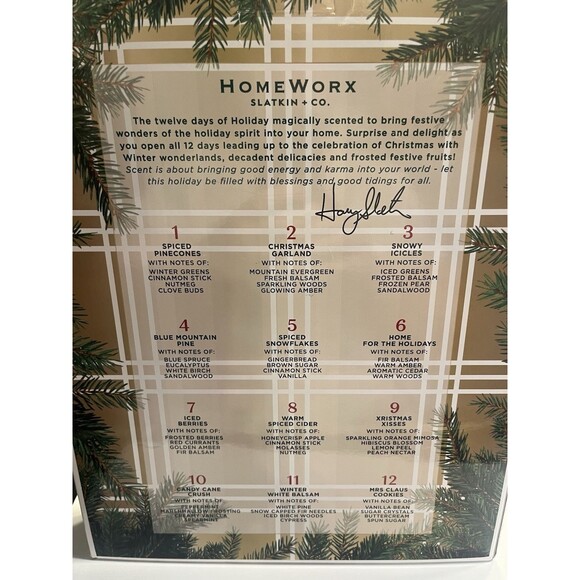 HOMEWORX
SLATKIN + CO.
The twelve days of Holiday magically scented to bring festive
wonders of the holiday spirit into your home. Surprise and delight as
you open all 12 days leading up to the celebration of Christmas with
Winter wonderlands, decadent delicacies and frosted festive fruits!
Scent is about bringing good energy and karma into your world - let
this holiday be filled with blessings and good tidings for all.
Harry Slatkin
1
SPICED
PINECONES
WITH NOTES OF:
WINTER GREENS
CINNAMON STICK
NUTMEG
CLOVE BUDS
2
CHRISTMAS
GARLAND
WITH NOTES OF:
MOUNTAIN EVERGREEN
FRESH BALSAM
SPARKLING WOODS
GLOWING AMBER
3
SNOWY
ICICLES
WITH NOTES OF:
ICED GREENS
FROSTED BALSAM
FROZEN PEAR
SANDALWOOD
4
BLUE MOUNTAIN
PINE
WITH NOTES OF:
BLUE SPRUCE
EUCALYPTUS
WHITE BIRCH
SANDALWOOD
5
SPICED
SNOWFLAKES
WITH NOTES OF:
GINGERBREAD
BROWN SUGAR
CINNAMON STICK
VANILLA
6
HOME
FOR THE HOLIDAYS
WITH NOTES OF:
FIR BALSAM
WARM AMBER
AROMATIC CEDAR
WARM WOODS
7
ICED
BERRIES
WITH NOTES OF:
FROSTED BERRIES
RED CURRANTS
GOLDEN AMBER
FIR BALSAM
8
WARM
SPICED CIDER
WITH NOTES OF:
HONEYCRISP APPLE
CINNAMON STICK
MOLASSES
NUTMEG
9
XRISTMAS
XISSES
WITH NOTES OF:
SPARKLING ORANGE MIMOSA
HIBISCUS BLOSSOM
LEMON PEEL
PEACH NECTAR
10
CANDY CANE
CRUSH
WITH NOTES OF:
PEPPERMINT
MARSHMALLOW FROSTING
CREAMY VANILLA
SPEARMINT
11
WINTER
WHITE BALSAM
WITH NOTES OF:
WHITE PINE
SNOW CAPPED FIR NEEDLES
ICED BIRCH WOODS
CYPRESS
12
MRS CLAUS
COOKIES
WITH NOTES OF:
VANILLA BEAN
SUGAR CRYSTALS
BUTTERCREAM
SPUN SUGAR